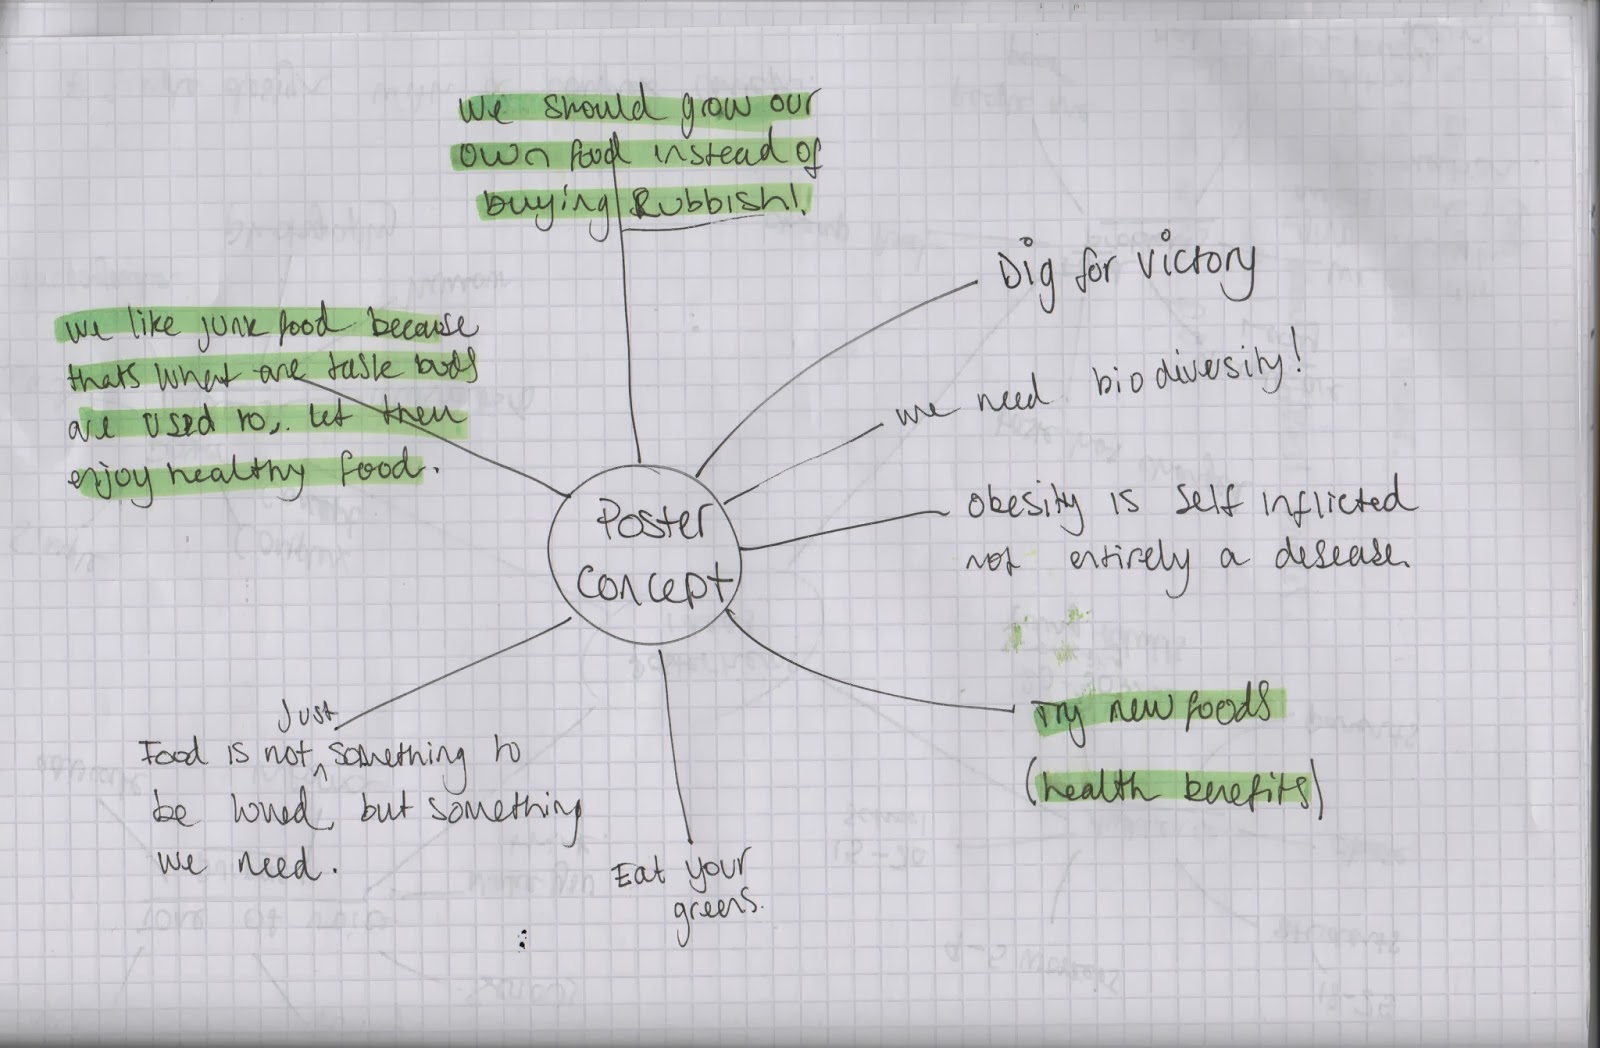 We should grow our
own food instead of
buying Rubbish!
Dig for Victory
we need biodiversity!
Obesity is self inflicted
not entirely a desease.
Try new foods
(health benefits)
Eat your
greens.
Just
Food is not ^ something to
be loved, but something
we need.
we like junk food because
thats what are taste buds
are used to, let them
enjoy healthy food.
Poster
Concept